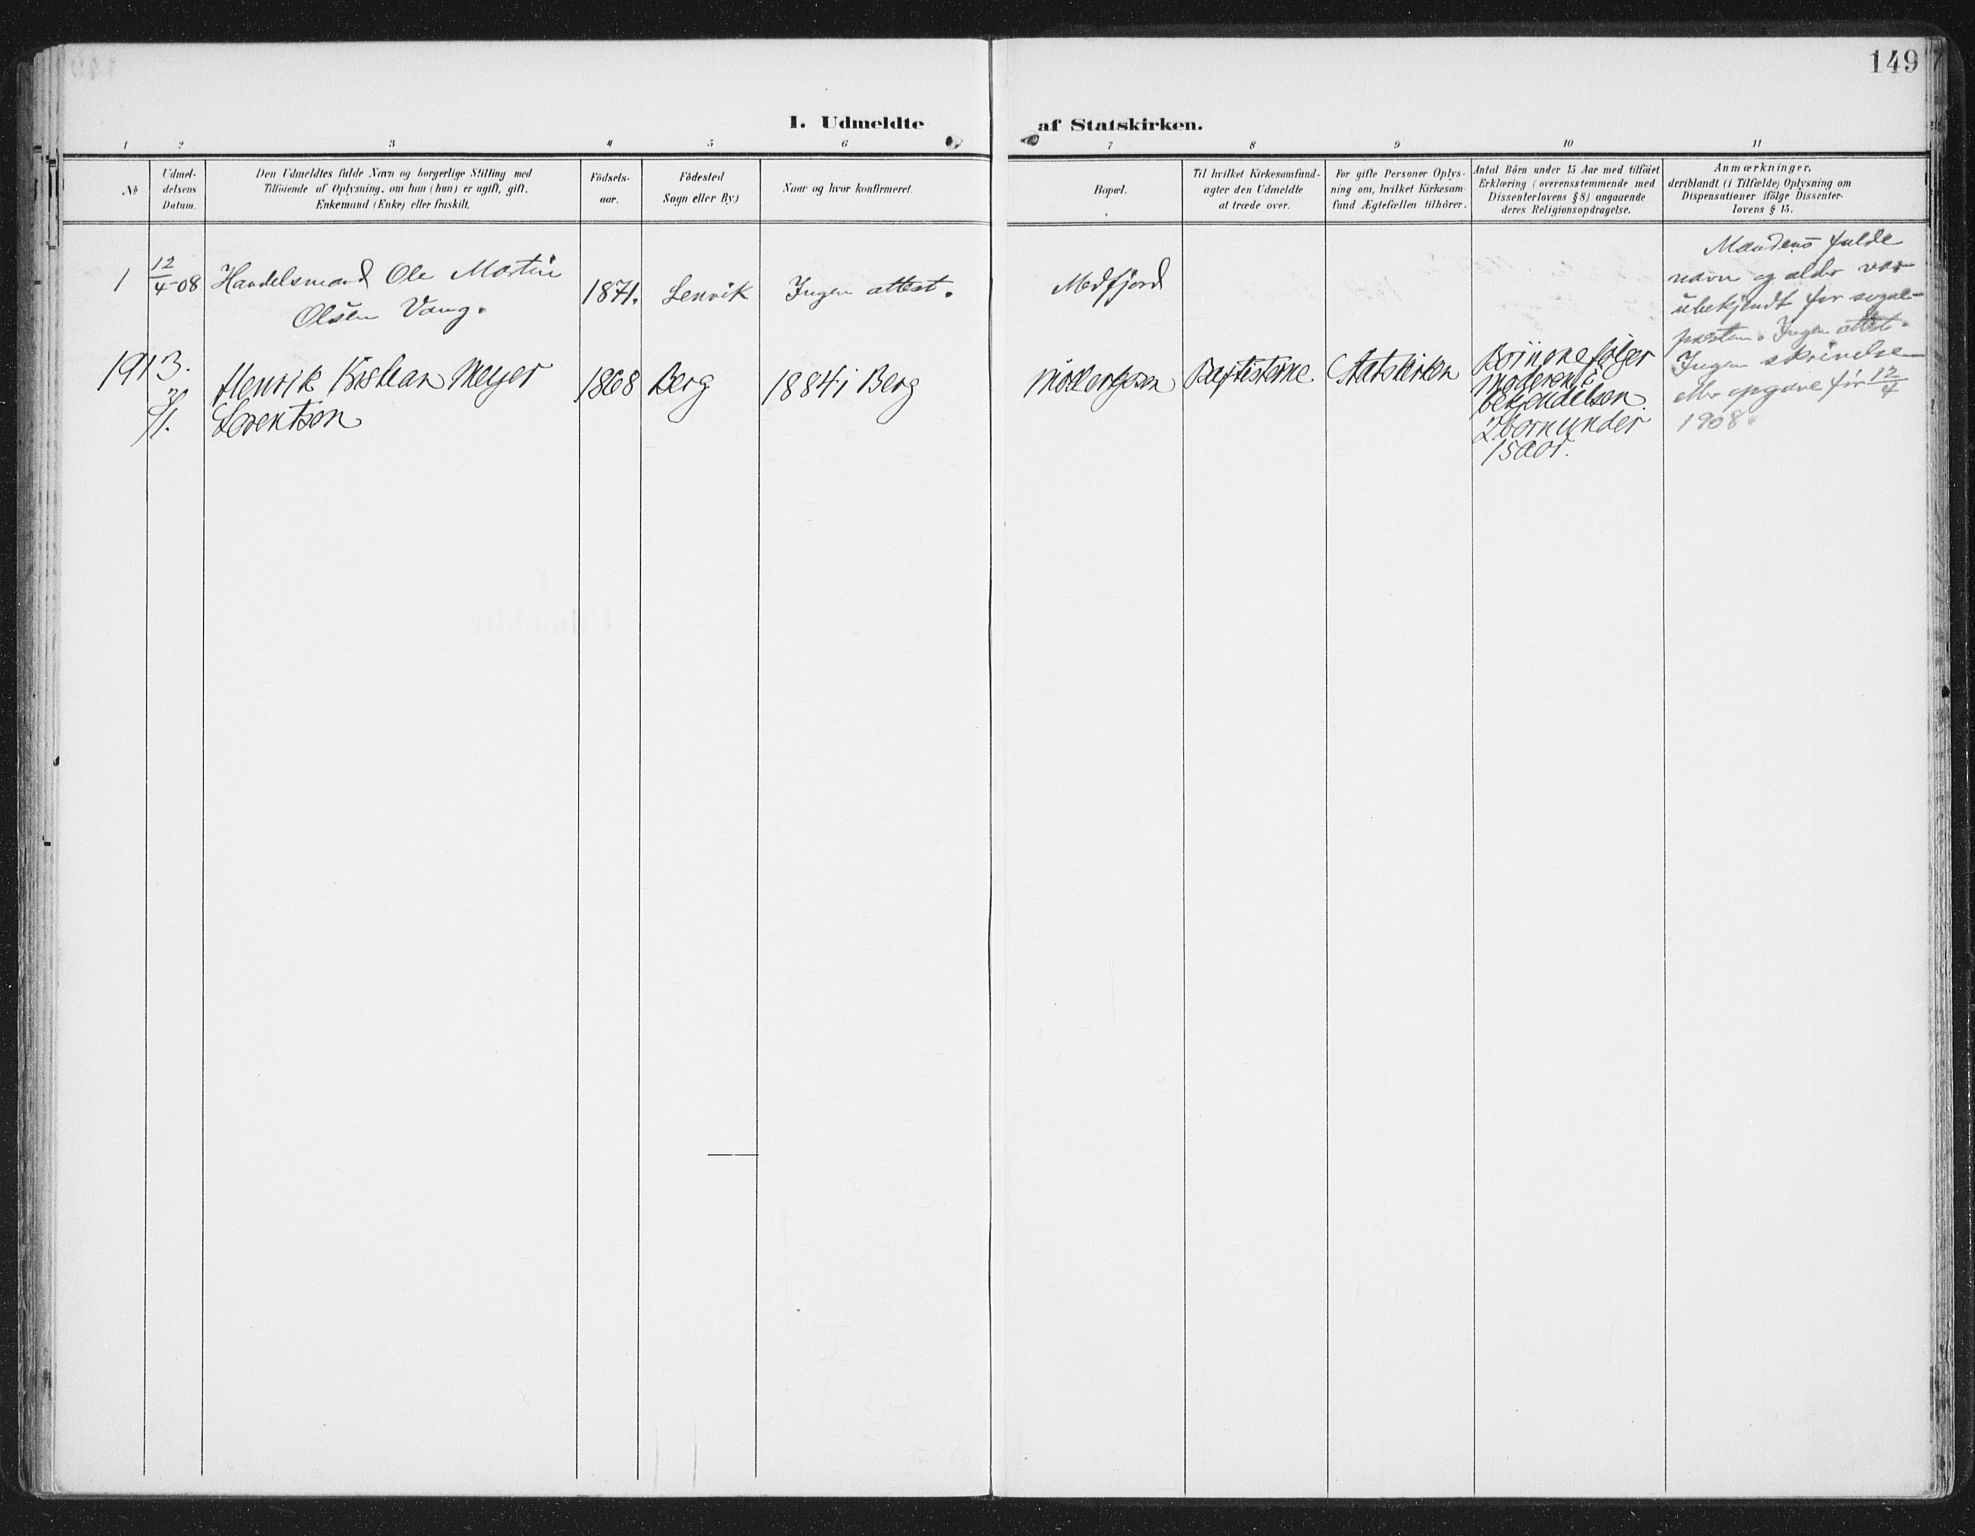 149
I. Udmeldte af Statskirken.
1 2 3 4 5 6 7 8 9 10 11
No
Udmel-
delsens
Datum.
Den Udmeldtes fulde Navn og borgerlige Stilling med
Tilföiende af Oplysning, om han (hun) er ugift, gift,
Enkemand (Enke) eller fraskilt.
Födsels-
aar.
Födested
(Sogn eller By)
Naar og hvor konfirmeret.
Bopæl.
Til hvilket Kirkesamfund-
agter den Udmeldte
at træde over.
For gifte Personer Oplys-
ning om, hvilket Kirkesam-
fund Ægtefællen tilhörer.
Antal Börn under 15 Aar med tilföiet
Erklæring (overensstemmende med
Dissenterlovens § 8) angaaende
deres Religionsopdragelse.
Anmærkninger,
deriblandt (i Tilfælde) Oplysning om
Dispensationer ifölge Dissenter-
lovens § 15.
1
12/4-08
Handelsmand Ole Martin
Olsen Vang.
1871.
Lenvik
Ingen attest.
Medfjord
Mandens fulde
navn og alder var
ubekjendt for sogne-
presten. Ingen attest.
Ingen skrivelse
eller opgave før 12/4
1908.
1913.
Henrik Kristian Meyer
Lorentsen
1868
Berg
1884 i Berg
Baptisterne
Statskirken
Børnene følger
moderen i
bekjendelsen.
2 børn under
15 aar.